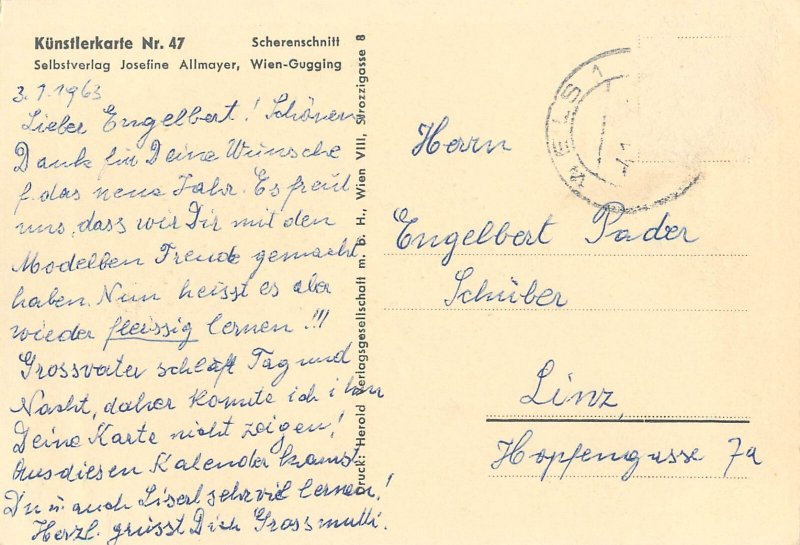 Künstlerkarte Nr. 47 Scherenschnitt
Selbstverlag Josefine Allmayer, Wien-Gugging
3.1.1963
Lieber Engelbert! Schönen
Dank für Deine Wünsche
f. das neue Jahr. Es freut
uns, dass wir Dir mit den
Modelben Freude gemacht
haben. Nun heisst es aber
wieder fleissig lernen!!!
Grossvater schläft Tag und
Nacht, daher konnte ich ihm
Deine Karte nicht zeigen!
Aus diesen Kalender kannst
Du u. auch Liserl sehr viel lernen!
Herzl. grüsst Dich Grossmutti.
Druck: Herold Verlagsgesellschaft m. b. H., Wien VIII, Strozzigasse 8
WELS 1
Herrn
Engelbert Pader
Schüler
Linz,
Hopfengasse 7a